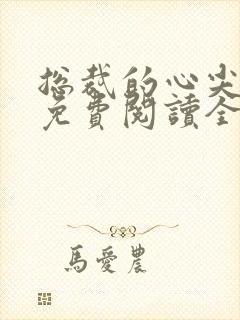 总裁的心尖
免費閱讀全
馬愛農